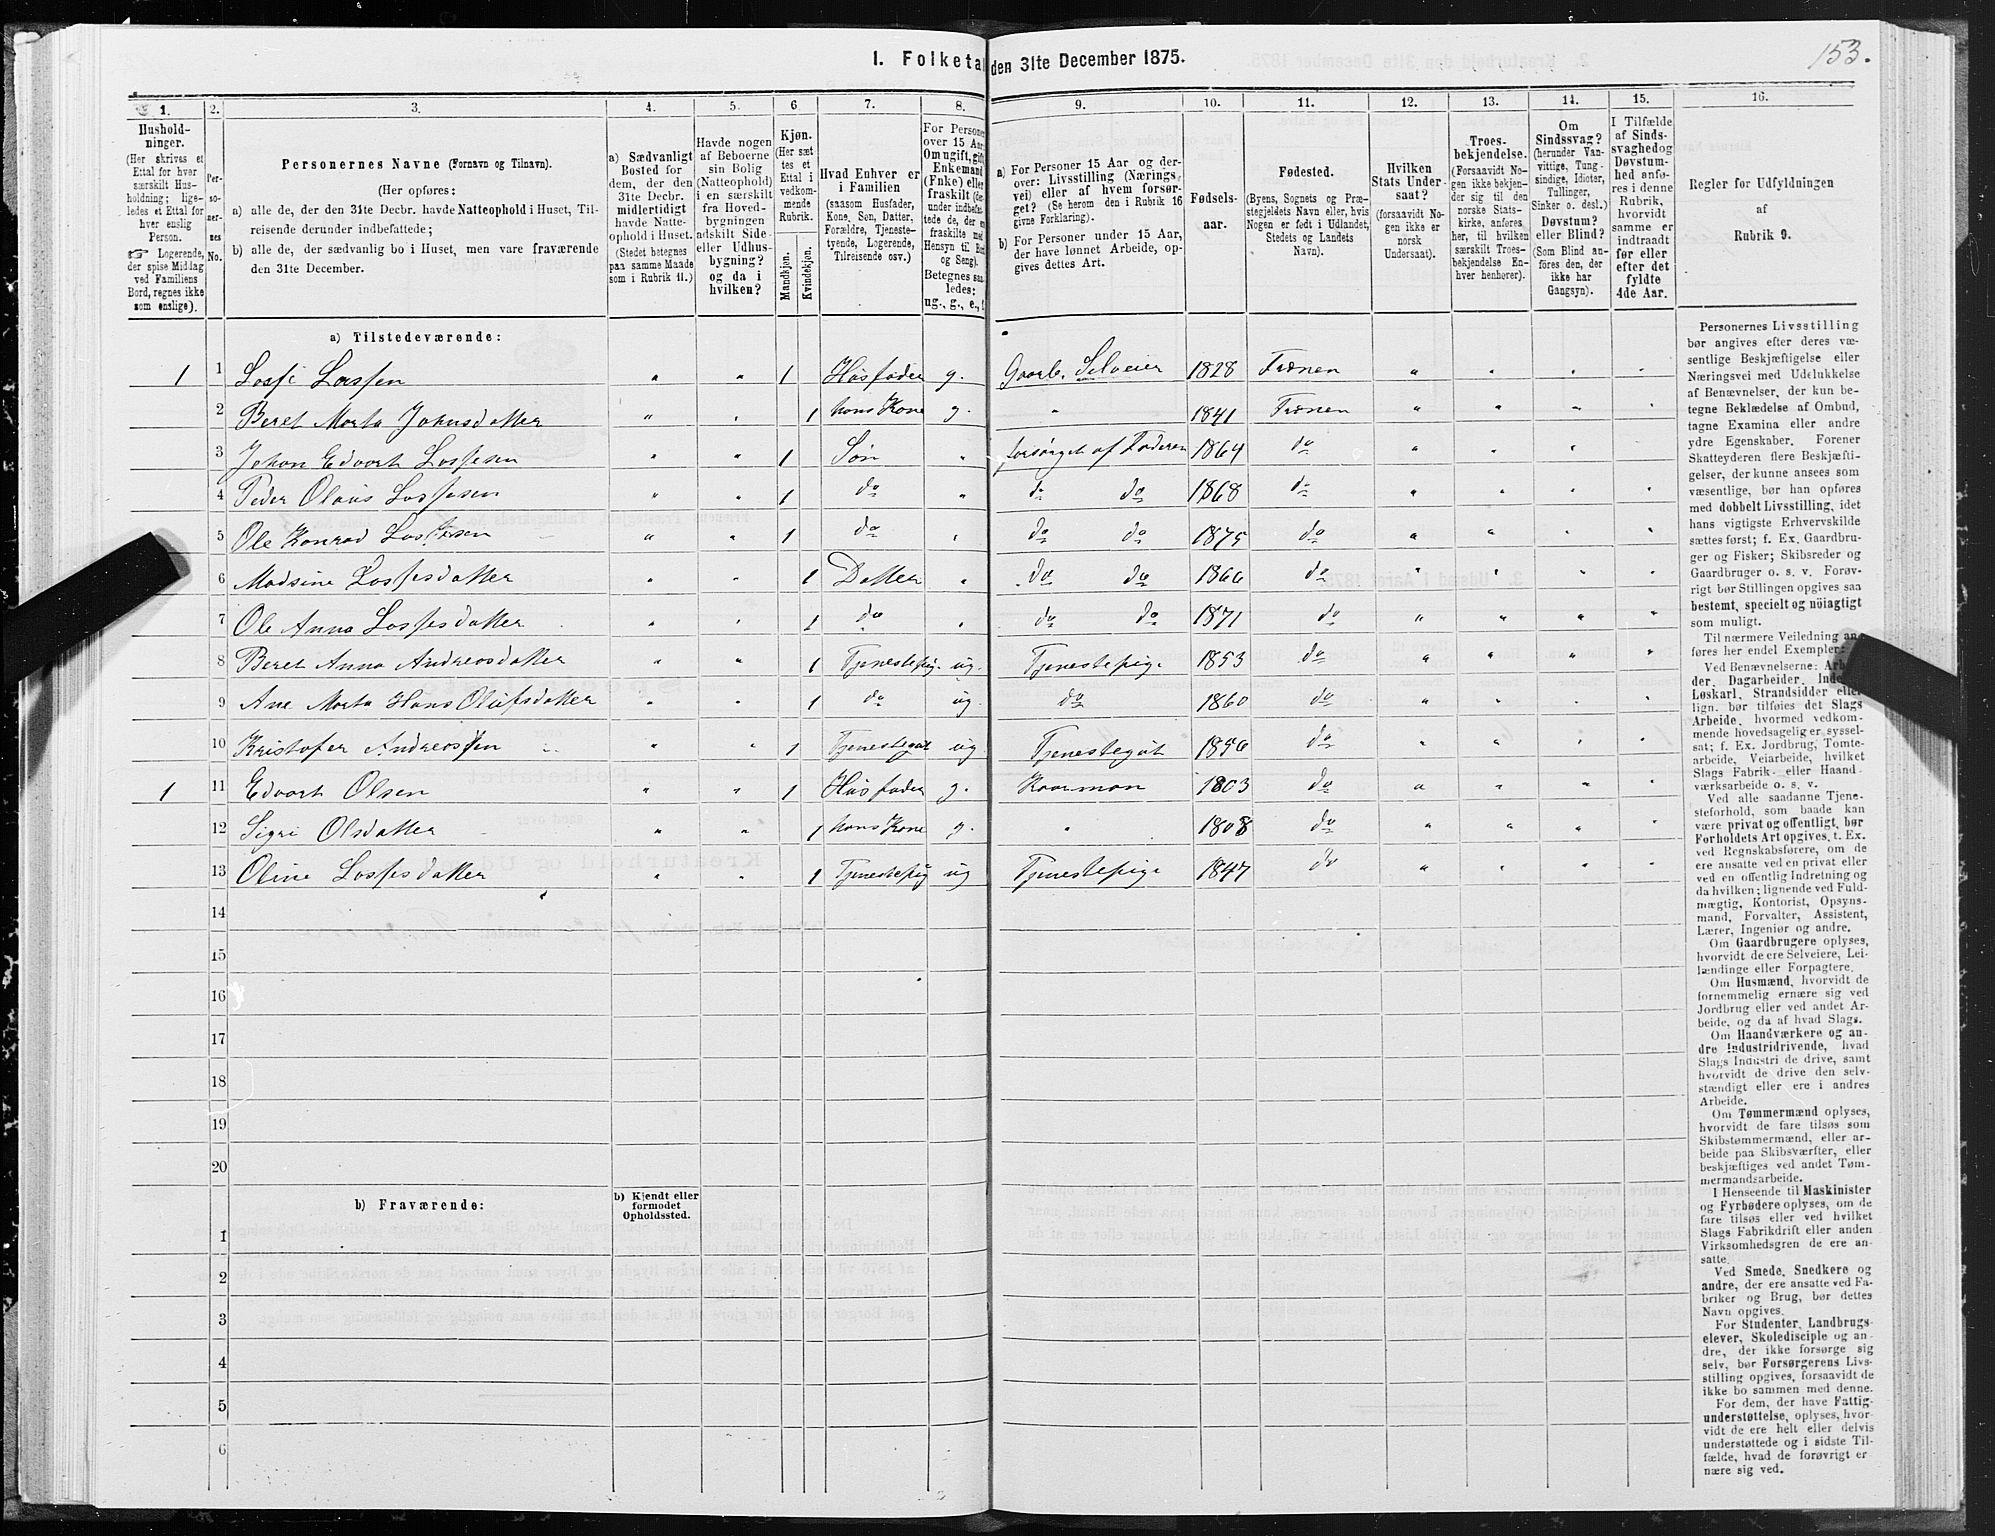 153.
I. Folketal den 31te December 1875.
1. 2. 3. 4. 5. 6. 7. 8. 9. 10. 11. 12. 13. 14. 15. 16.
Hushold-
ninger.
(Her skrives et
Ettal for hver
særskilt Hus-
holdning; lige-
ledes et Ettal for
hver enslig
Person.
☞ Logerende,
der spise Middag
ved Familiens
Bord, regnes ikke
som enslige).
Per-
so-
ner-
nes
No.
Personernes Navne (Fornavn og Tilnavn).
(Her opføres:
a) alle de, der den 31te Decbr. havde Natteophold i Huset, Til-
reisende derunder indbefattede;
b) alle de, der sædvanlig bo i Huset, men vare fraværende
den 31te December.
a) Sædvanligt
Bosted for
dem, der den
31te Decbr.
midlertidigt
havde Natte-
ophold i Huset.
(Stedet betegnes
paa samme Maade
som i Rubrik 11.)
Havde nogen
af Beboerne
sin Bolig
(Natteophold)
i en særskilt
fra Hoved-
bygningen
adskilt Side-
eller Udhus-
bygning?
og da i
hvilken?
Kjøn.
(Her sæt-
tes et
Ettal i
vedkom-
mende
Rubrik.
Mandkjøn.
Kvindekjøn.
Hvad Enhver er
i Familien
(saasom Husfader,
Kone, Søn, Datter,
Forældre, Tjeneste-
tyende, Logerende,
Tilreisende osv.)
For Personer
over 15 Aar:
Om ugift, gift,
Enkemand
(Enke) eller
fraskilt
under indbefat-
tede de, der ere
fraskilte med
Hensyn til Bord
og Seng).
Betegnes saa-
ledes:
ug., g., e.,
a) For Personer 15 Aar og der-
over: Livsstilling (Nærings-
vei) eller af hvem forsør-
get? (Se herom den i Rubrik 16
givne Forklaring).
b) For Personer under 15 Aar,
der have lønnet Arbeide, op-
gives dettes Art.
Fødsels-
aar.
Fødested.
(Byens, Sognets og Præ-
stegjeldets Navn eller, hvis
Nogen er født i Udlandet,
Stedets og Landets
Navn).
Hvilken
Stats Under-
saat?
(forsaavidt No-
gen ikke er
norsk
Undersaat).
Troes-
bekjendelse.
(Forsaavidt No-
gen ikke bekjen-
der sig til den
norske Stats-
kirke, anføres
her, til hvilken
særskilt Troes-
bekjendelse En-
hver henhører).
Om
Sindssvag?
(herunder Van-
vittige, Tung-
sindige, Idioter,
Tullinger,
Sinker o. desl.)
Døvstum?
eller Blind?
(Som Blind an-
føres den, der
ikke har
Gangsyn).
I Tilfælde
af Sinds-
svaghed og
Døvstum-
hed anfø-
res i denne
Rubrik,
hvorvidt
samme er
indtraadt
før eller
efter det
fyldte
4de Aar.
Regler for Udfyldningen
af
Rubrik 9.
a) Tilstedeværende:
1 1 Losfi Lassen " " 1 Husfader g. Gaarb. Selveier 1828 Trænen " " " "
2 Beret Marta Johnsdatter " " 1 hans Kone g. " 1841 Trænen " " " "
3 Johan Edvart Losfesen " " 1 Søn " forsørget af Faderen 1864 do " " " "
4 Peder Olaus Losfesen " " 1 do " do do 1868 do " " " "
5 Ole Konrad Losfesen " " 1 do " do do 1875 do " " " "
6 Madsine Losfesdatter " " 1 Datter " do do 1866 do " " " "
7 Ole Anna Losfesdatter " " 1 do " do do 1871 do " " " "
8 Beret Anna Andreasdatter " " 1 Tjenestepig. ug. Tjenestepige 1853 do " " " "
9 Ane Marta Hans Olufsdatter " " 1 do ug. do 1860 do " " " "
10 Kristofer Andreassen " " 1 Tjenestegut ug Tjenestegut 1856 do " " " "
1 11 Edvart Olsen " " 1 Husfader g. Kaarman 1803 do " " " "
12 Sigri Olsdatter " " 1 hans Kone g. " 1808 do " " " "
13 Oline Losfesdatter " " 1 Tjenestepig ug Tjenestepige 1847 do " " " "
14
15
16
17
18
19
20
b) Fraværende:
b) Kjendt eller
formodet
Opholdssted.
1
2
3
4
5
6
Personernes Livsstilling
bør angives efter deres væ-
sentlige Beskjæftigelse eller
Næringsvei med Udelukkelse
af Benævnelser, der kun be-
tegne Beklædelse af Ombud,
tagne Examina eller andre
ydre Egenskaber. Forener
Skatteyderen flere Beskjæfti-
gelser, der kunne ansees som
væsentlige, bør han opføres
med dobbelt Livsstilling, idet
hans vigtigste Erhvervskilde
sættes først; f. Ex. Gaardbru-
ger og Fisker; Skibsreder og
Gaardbruger o. s. v. Forøv-
rigt bør Stillingen opgives saa
bestemt, specielt og nöiagtigt
som muligt.
Til nærmere Veiledning an-
føres her endel Exempler:
Ved Benævnelserne:
der, Dagarbeider,
Løskarl, Strandsidder eller
lign. bør tilføies det Slags
Arbeide, hvormed vedkom-
mende hovedsagelig er syssel-
sat; f. Ex. Jordbrug, Tomte-
arbeide, Veiarbeide, hvilket
Slags Fabrik- eller Haand-
værksarbeide o. s. v.
Ved alle saadanne Tjene-
steforhold, som baade kan
være privat og offentligt, bør
Forholdets Art opgives, t. Ex.
ved Regnskabsførere, om de
ere ansatte ved en privat eller
ved en offentlig Indretning og
da hvilken; lignende ved Fuld-
mægtig, Kontorist, Opsyns-
mand, Forvalter, Assistent,
Lærer, Ingeniør og andre.
Om Gaardbrugere oplyses,
hvorvidt de ere Selveiere, Lei-
lændinge eller Forpagtere.
Om Husmænd, hvorvidt de
fornemmelig ernære sig ved
Jordbrug eller ved andet Ar-
beide, og da af hvad Slags.
Om Haandværkere og an-
dre Industridrivende, hvad
Slags Industri de drive, samt
hvorvidt de drive den selv-
stændigt eller ere i andres
Arbeide.
Om Tømmermænd oplyses,
hvorvidt de fare tilsøs som
Skibstømmermænd, eller ar-
beide paa Skibsværfter, eller
beskjæftiges ved andet Tøm-
mermandsarbeide.
I Henseende til Maskinister
og Fyrbødere oplyses, om de
fare tilsøs eller ved hvilket
Slags Fabrikdrift eller anden
Virksomhedsgren de ere an-
satte.
Ved Smede, Snedkere og
andre, der ere ansatte ved Fa-
briker og Brug, bør dettes
Navn opgives.
For Studenter, Landbrugs-
elever, Skoledisciple og an-
dre, der ikke forsørge sig
selv, bør Forsørgerens Livs-
stilling opgives, forsaavidt de
ikke bo sammen med denne.
For dem, der have Fattig-
understøttelse, oplyses, hvor-
vidt de ere helt eller delvis
understøttede og i sidste Til-
fælde, hvad de forøvrigt er-
nære sig ved.